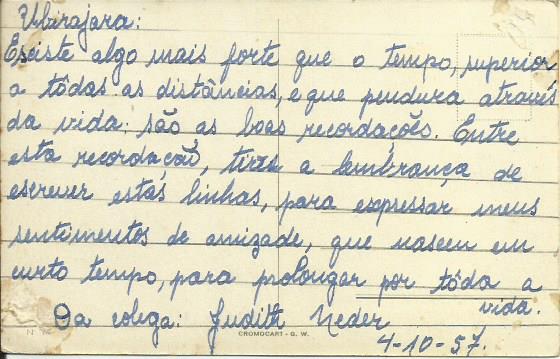 Ubirajara:
Existe algo mais forte que o tempo, superior
a tôdas as distâncias, e que perdura através
da vida: são as boas recordações. Entre
esta recordação, tive a lembrança de
escrever estas linhas, para expressar meus
sentimentos de amizade, que nasceu em
curto tempo, para prolongar por tôda a
vida.
Da colega: Judith Neder
CROMOCART - G. W.
4-10-57.